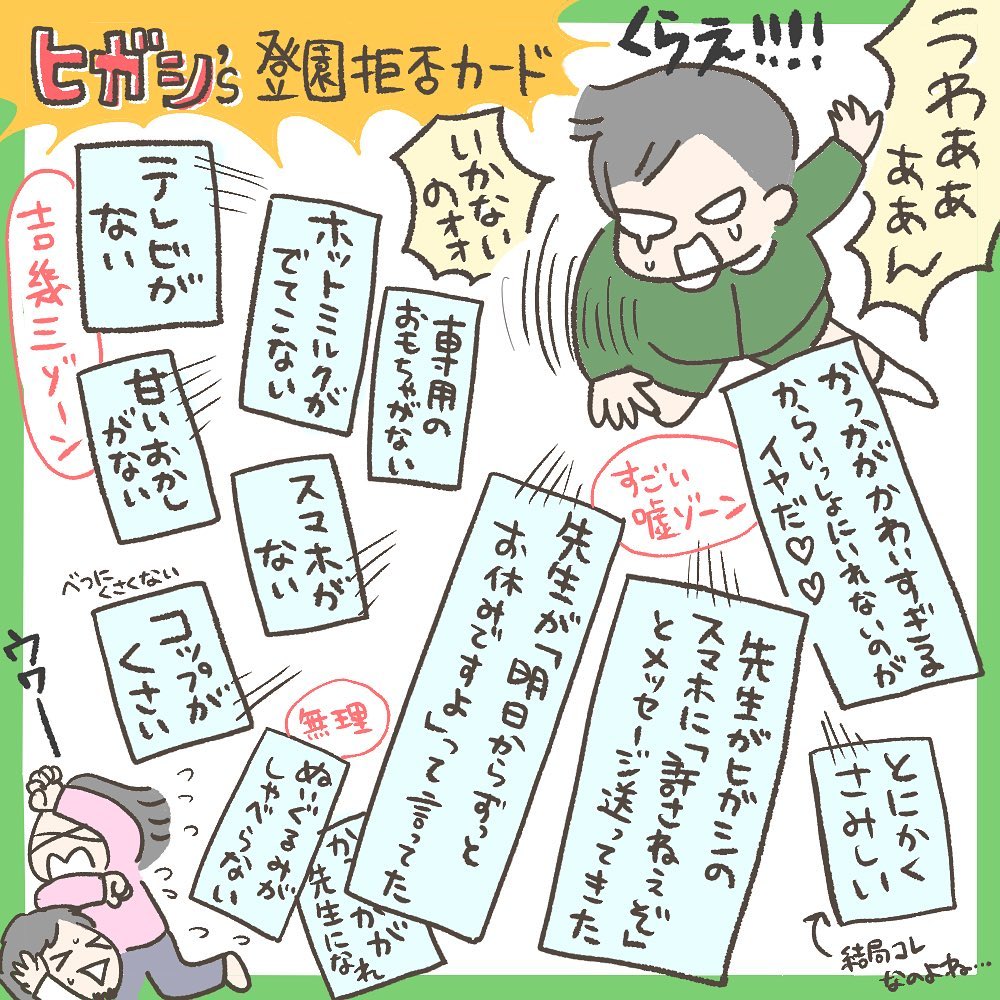 ヒガシ's 登園拒否カード
くらえ!!!!
うわああ
ああん
いかない
のォォ
テレビが
ない
ホットミルクが
でてこない
専用の
おもちゃがない
吉幾三ゾーン
甘いおかし
がない
スマホが
ない
べつに
くさくない
コップが
くさい
かっかがかわいすぎる
からいっしょにいれないのが
イヤだ♡♡
すごい
嘘ゾーン
先生が「明日からずっと
お休みですよ」って言ってた
先生がヒガシの
スマホに「許さねえぞ」
とメッセージ送ってきた
とにかく
さみしい
結局コレ
なのよね…
無理
ぬいぐるみが
しゃべらない
かっかが
先生になれ
ウウー